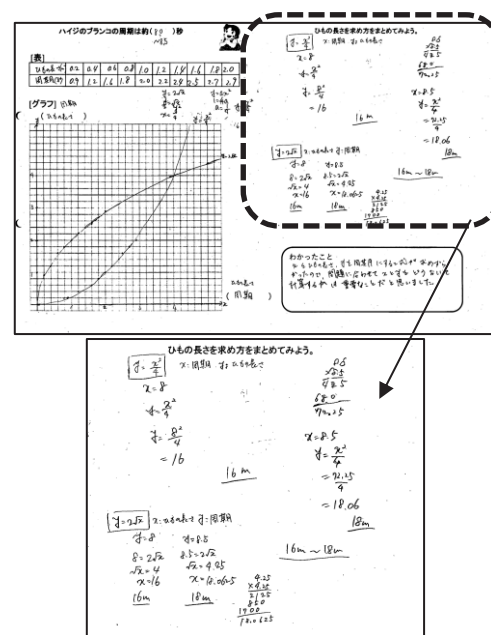 ハイジのブランコの周期は約( )秒
[表]
ひもの長さ(m) 0.2 0.4 0.6 0.8 1.0 1.2 1.4 1.6 1.8 2.0
周期(秒) 0.9 1.2 1.6 1.8 2.0 2.2 2.4 2.5 2.7 2.9
[グラフ] 周期
y=2√x
(ひもの長さ)
ひもの長さ
(周期)
ひもの長さを求め方をまとめてみよう。
y=x²/4 x:周期 y:ひもの長さ
x=8
y=x²/4
y=8²/4
=16
16m
x=8.5
y=x²/4
=72.25/4
=18.06
18m
y=2√x x:ひもの長さ y:周期
y=8 y=8.5
8=2√x 8.5=2√x
√x=4 √x=4.25
x=16 x=18.0625
16m 18m
16m〜18m
4.25
×4.25
2125
850
1700
18.0625
わかったこと
ひもの長さを求め方をまとめてみよう。
y=x²/4 x:周期 y:ひもの長さ
x=8
y=x²/4
y=8²/4
=16
16m
8.5
×8.5
425
680
72.25
x=8.5
y=x²/4
=72.25/4
=18.06
18m
y=2√x x:ひもの長さ y:周期
y=8 y=8.5
8=2√x 8.5=2√x
√x=4 √x=4.25
x=16 x=18.0625
16m 18m
4.25
×4.25
2125
850
1700
18.0625
16m〜18m